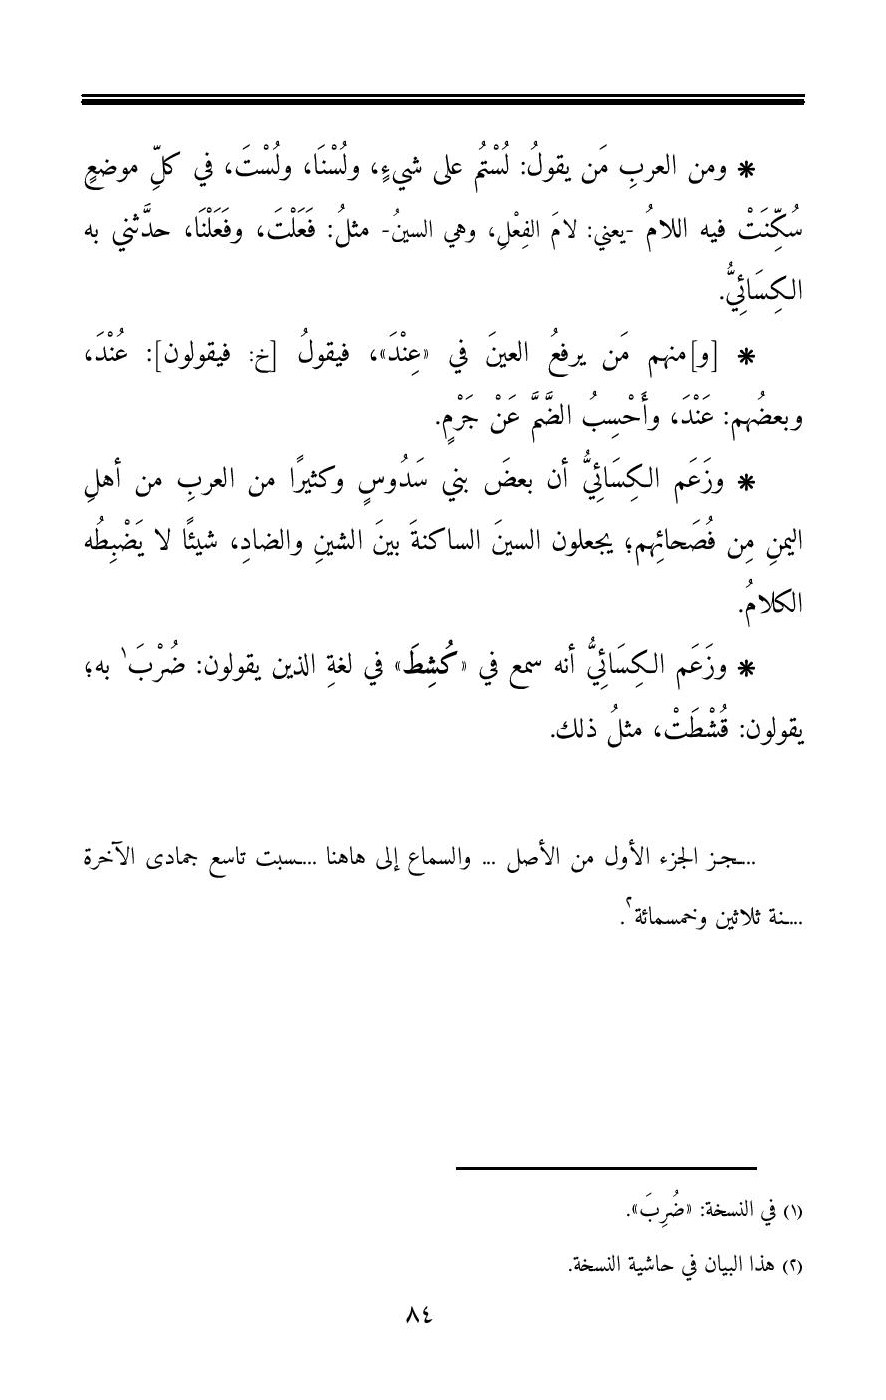 * ومن العربِ مَن يقولُ: لُسْتُم على شيءٍ، ولُسْنَا، ولُسْتَ، في كلِّ موضعٍ
سُكِّنَتْ فيه اللامُ -يعني: لامَ الفِعْلِ، وهي السينُ- مثلُ: فَعَلْتَ، وفَعَلْنَا، حدَّثني به
الكِسَائِيُّ.
* [و]منهم مَن يرفعُ العينَ في «عِنْدَ»، فيقولُ [خ: فيقولون]: عُنْدَ،
وبعضُهم: عَنْدَ، وأَحْسِبُ الضَّمَّ عَنْ جَرْمٍ.
* وزَعَم الكِسَائِيُّ أن بعضَ بني سَدُوسٍ وكثيرًا من العربِ من أهلِ
اليمنِ مِن فُصَحائِهم؛ يجعلون السينَ الساكنةَ بينَ الشينِ والضادِ، شيئًا لا يَضْبِطُه
الكلامُ.
* وزَعَم الكِسَائِيُّ أنه سمع في «كُشِطَ» في لغةِ الذين يقولون: ضُرْبَ١ به؛
يقولون: قُشْطَتْ، مثلُ ذلك.
...ـجـز الجزء الأول من الأصل ... والسماع إلى هاهنا ...ـسبت تاسع جمادى الآخرة
...ـنة ثلاثين وخمسمائة٢.
(١) في النسخة: «ضُرِبَ».
(٢) هذا البيان في حاشية النسخة.
٨٤